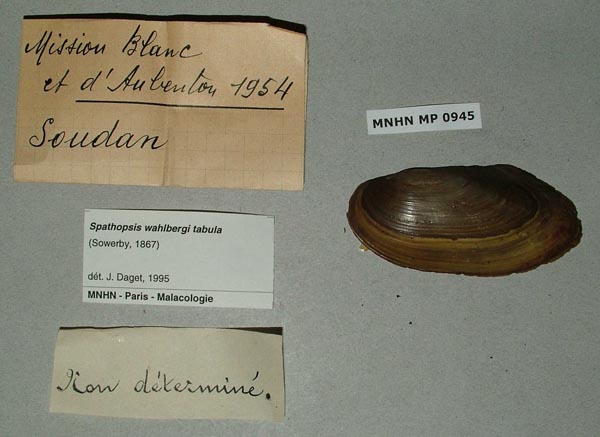 Mission Blanc
et d'Aubenton 1954
Soudan
MNHN MP 0945
Spathopsis wahlbergi tabula
(Sowerby, 1867)
dét. J. Daget, 1995
MNHN - Paris - Malacologie
Non déterminé.